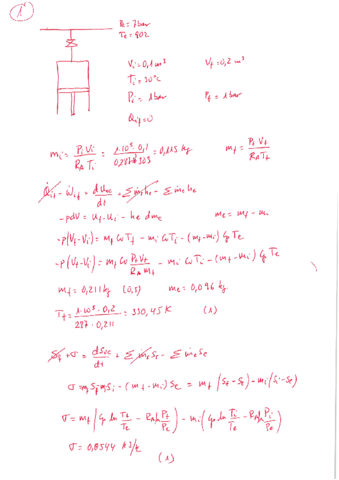 1
Pe = 7 bar
Te = 80℃
Vi = 0,1 m³ Vf = 0,2 m³
Ti = 30℃
Pi = 1 bar Pf = 1 bar
Qif = 0
mi = Pi Vi / RA Ti = 1·10⁵·0,1 / 0,287·303 = 0,115 kg mf = Pf Vf / RA Tf
Q̇if - Ẇif = dUvc/dt + Σṁs hs - Σṁe he
-pdV = Uf - Ui - he dme me = mf - mi
-p(Vf - Vi) = mf Cv Tf - mi Cv Ti - (mf - mi) Cp Te
-p(Vf - Vi) = mf Cv Pf Vf / RA mf - mi Cv Ti - (mf - mi) Cp Te
mf = 0,211 kg (0,5) me = 0,096 kg
Tf = 1·10⁵·0,2 / 287·0,211 = 330,45 K (1)
Ṡf + σ = dSvc/dt + Σṁs Ss - Σṁe Se
σ = mf Sf - mi Si - (mf - mi) Se = mf (Sf - Se) - mi (Si - Se)
σ = mf (Cp ln Tf/Te - RA ln Pf/Pe) - mi (Cp ln Ti/Te - RA ln Pi/Pe)
σ = 0,0544 kJ/k
(1)